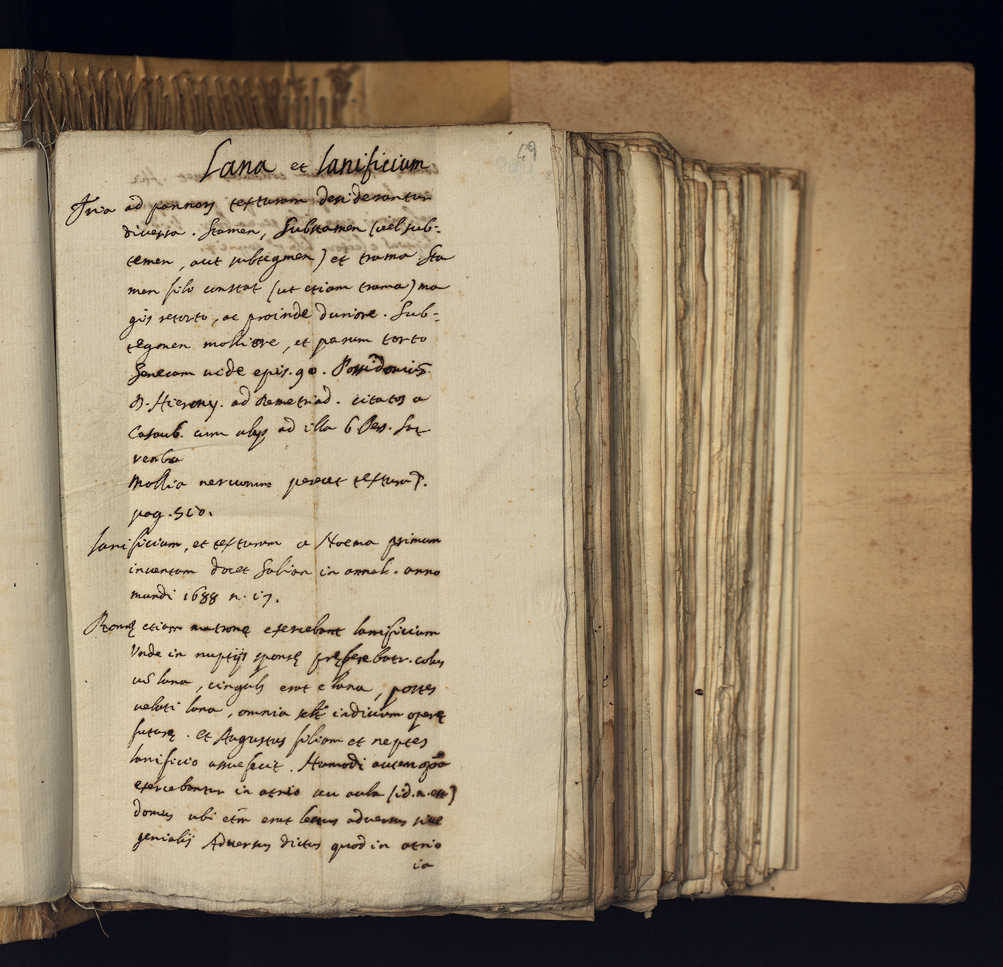 49
Lana et lanificium
Tria ad pannorum texturam desiderantur
diversa. Stamen, Substamen (vel sub-
temen, aut subtegmen) et trama. Sta
men filo constat (ut etiam trama) ma
gis retorto, ac proinde duriore. Sub-
tegmen molliore, et parum torto
Senecam vide epis. 90. Possidonius
D. Hierony. ad Demetriad. citatos a
Casaub. cum alijs ad illa 6 Pers. Sat.
verba
Mollia nervorum
pag. 510.
Lanificium, et texturam a Noema primum
inventam docet Salian in annal. anno
mundi 1688 n. 17.
Romę etiam matronę exercebant lanificium
Unde in nuptijs sponsę pręferebatr. colus
cū lana, cingulū erat e lana, postes
velati lana, omnia indicium operę
futurę. Et Augustus filiam et neptes
lanificio assuefecit. Humodi autem opa
exercebantur in atrio seu aula (id. n. erat)
domus ubi etm erat lectus adversus sive
genialis Adversus dictus quod in atrio
ia